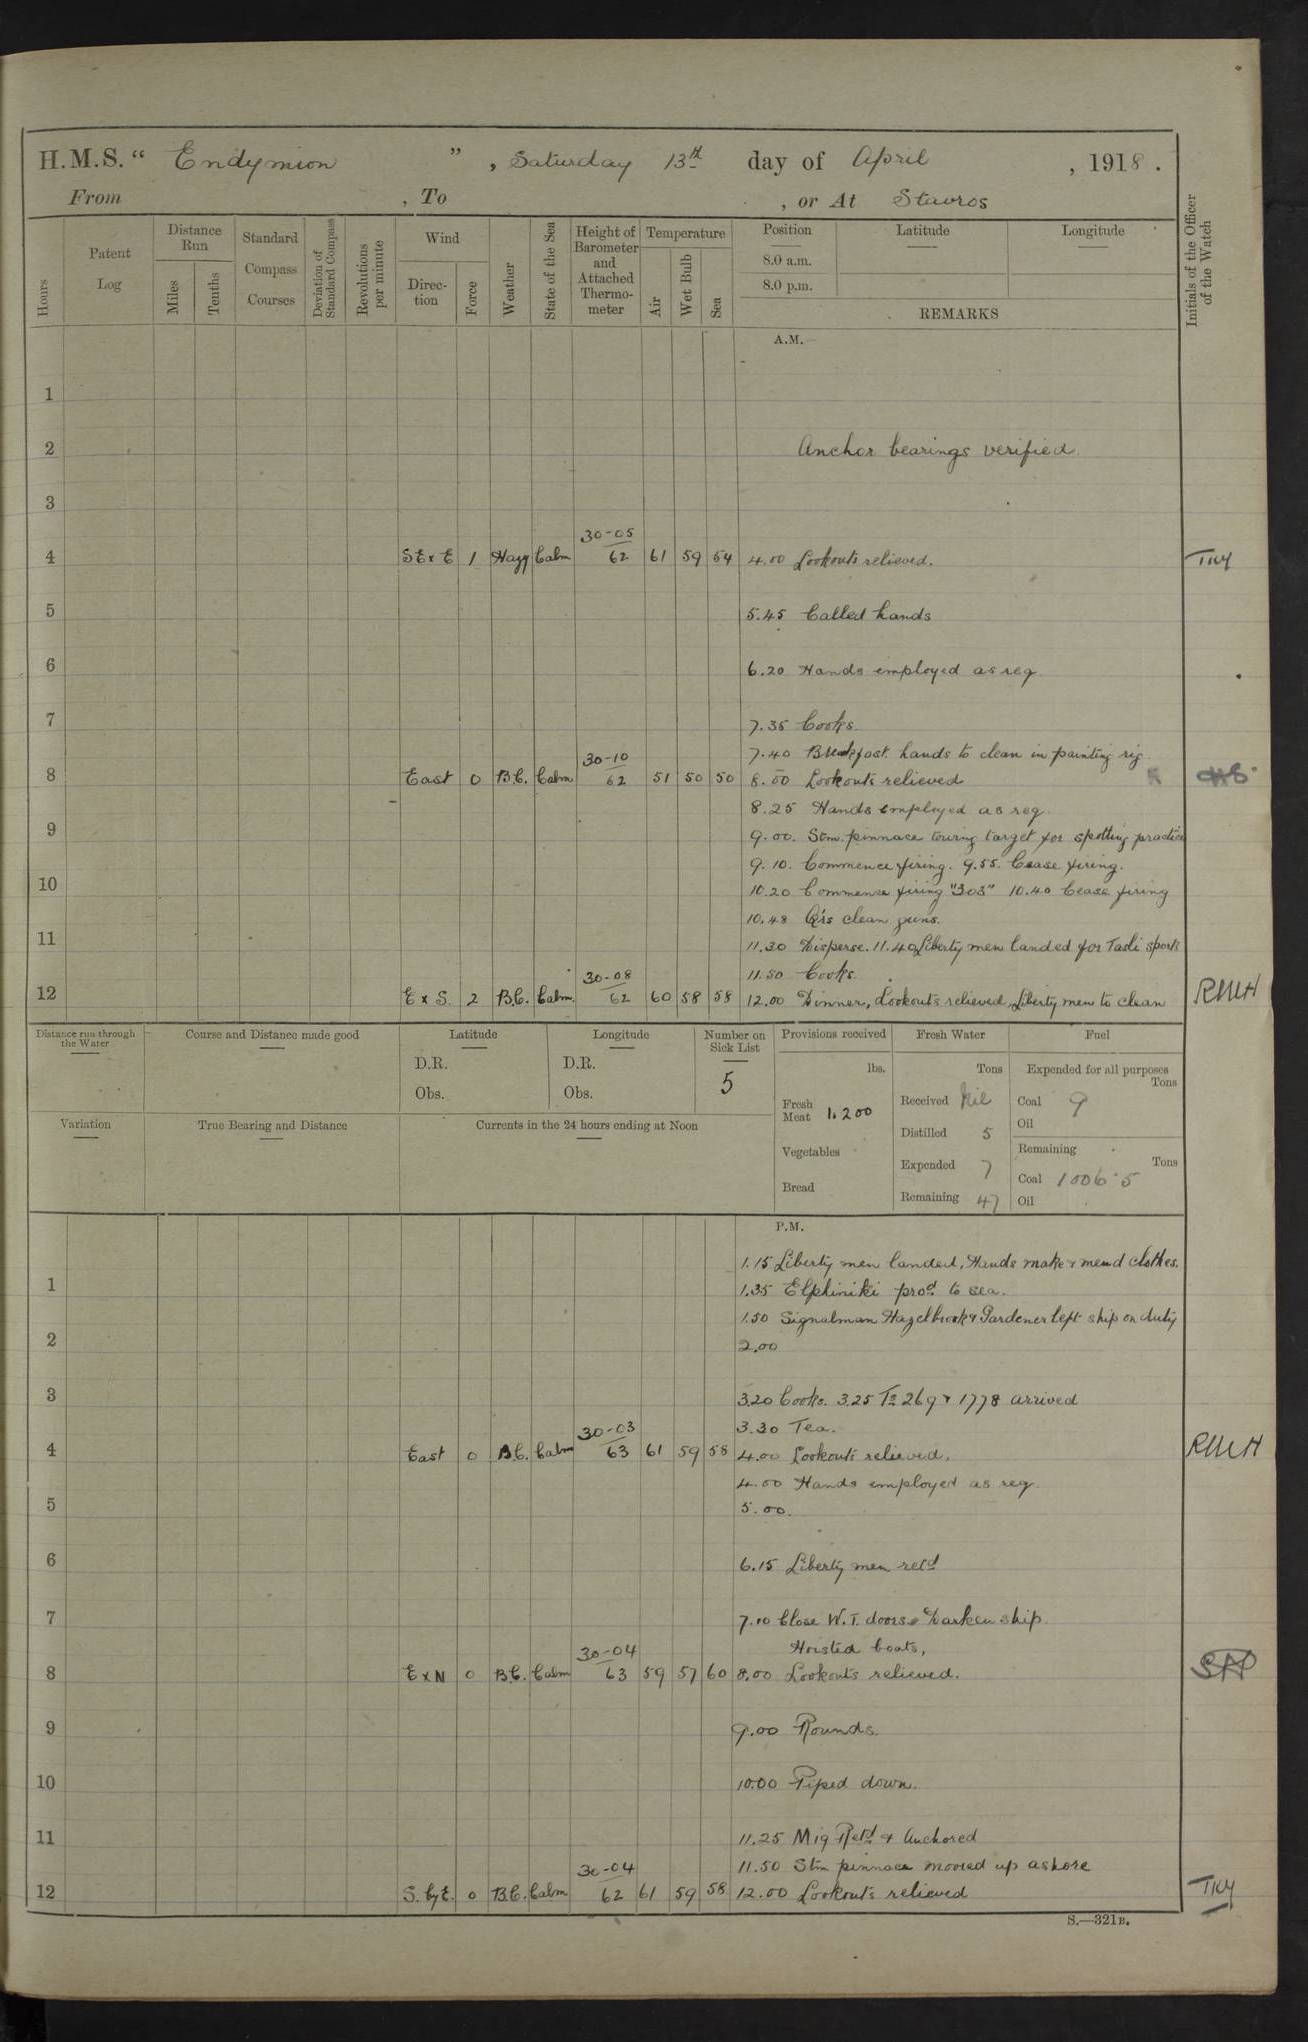 H.M.S. “ Endymion ” , Saturday 13th day of April , 1918 .
From , To , or At Stavros
Hours
Patent Log
Distance Run
Miles
Tenths
Standard Compass Courses
Deviation of Standard Compass
Revolutions per minute
Wind
Direction
Force
Weather
State of the Sea
Height of Barometer and Attached Thermometer
Temperature
Air
Wet Bulb
Sea
Position
8.0 a.m.
8.0 p.m.
Latitude
Longitude
REMARKS
Initials of the Officer of the Watch
A.M.
1
2 Anchor bearings verified
3
30-05
4 SE x E 1 Hazy Calm 62 61 59 54 4.00 Lookouts relieved.
5 5.45 Called hands
6 6.20 Hands employed as req
7 7.35 Cooks
7.40 Breakfast. hands to clean in painting rig
30-10
8 East 0 B.C. Calm 62 51 50 50 8.00 Lookouts relieved
8.25 Hands employed as req
9 9.00. Stm. pinnace towing target for spotting practice
9.10. Commence firing. 9.55. Cease firing.
10 10.20 Commence firing "303" 10.40 Cease firing
10.48 Qrs clean guns.
11 11.30 Disperse. 11.40 Liberty men landed for Tasli sports
11.50 Cooks.
30-08
12 E x S. 2 B.C. Calm. 62 60 58 58 12.00 Dinner, Lookouts relieved, Liberty men to clean RMH
Distance run through the Water
Course and Distance made good
Latitude
D.R.
Obs.
Longitude
D.R.
Obs.
Number on Sick List
5
Provisions received
lbs.
Fresh Meat 1.200
Vegetables
Bread
Fresh Water
Tons
Received Nil
Distilled 5
Expended 7
Remaining 47
Fuel
Expended for all purposes
Tons
Coal 9
Oil
Remaining
Tons
Coal 1006.5
Oil
Variation
True Bearing and Distance
Currents in the 24 hours ending at Noon
P.M.
1.15 Liberty men landed, Hands make & mend clothes.
1 1.35 Elphiniki procd to sea.
1.50 Signalman Hazelbrook & Gardener left ship on duty
2 2.00
3 3.20 Cooks. 3.25 269 & 1778 arrived
30-03 3.30 Tea.
4 East 0 B.C. Calm 63 61 59 58 4.00 Lookouts relieved. RMH
4.00 Hands employed as req.
5 5.00.
6 6.15 Liberty men retd
7 7.10 Close W.T. doors & Darken ship.
Hoisted boats,
30-04
8 E x N 0 B.C. Calm 63 59 57 60 8.00 Lookouts relieved.
9 9.00 Rounds.
10 10.00 Piped down.
11 11.25 M19 Retd & Anchored
30-04 11.50 Stm pinnace moored up ashore
12 S. by E. 0 B.C. Calm 62 61 59 58 12.00 Lookouts relieved
S.—321B.